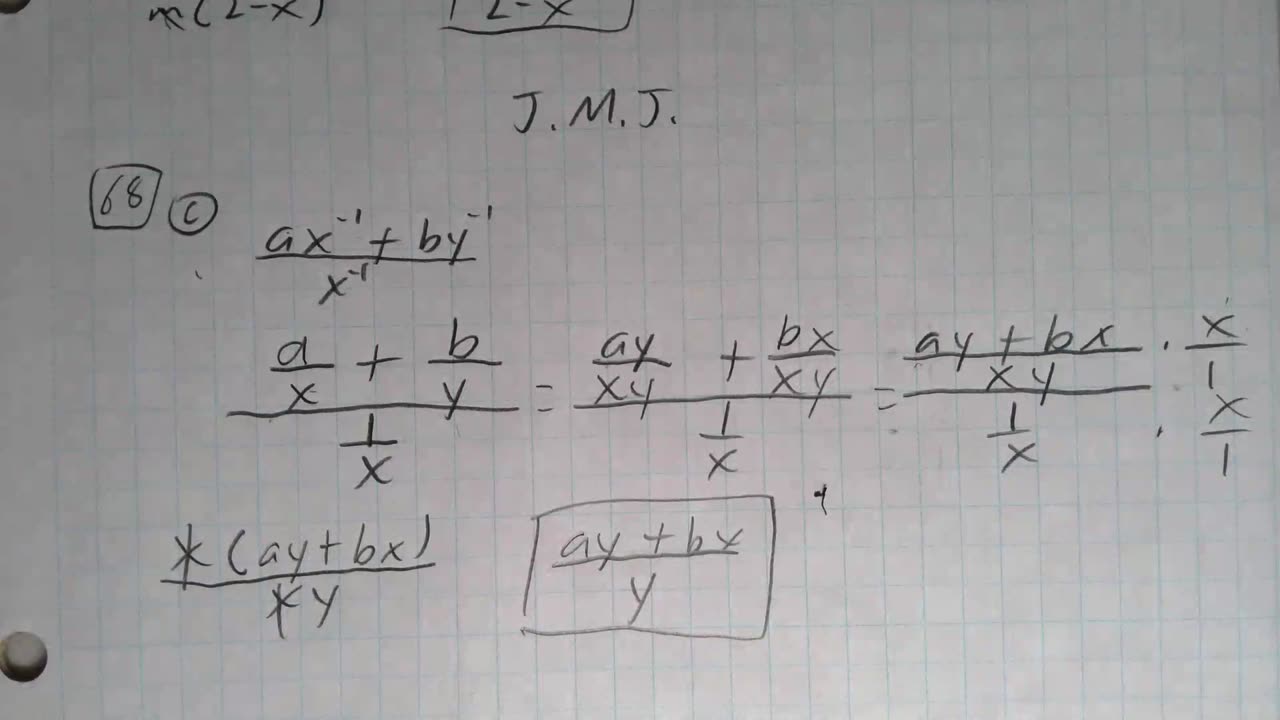 m(2-x) 2-x
J.M.J.
68 c
(ax⁻¹ + by⁻¹)/x⁻¹
(a/x + b/y)/(1/x) = (ay/xy + bx/xy)/(1/x) = ((ay + bx)/xy · x/1)/(1/x · x/1)
x(ay+bx)/xy (ay + bx)/y